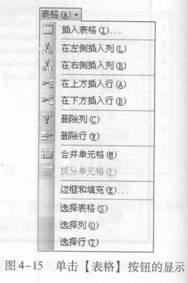 表格(A)
插入表格(I)...
在左侧插入列(L)
在右侧插入列(R)
在上方插入行(A)
在下方插入行(B)
删除列(C)
删除行(W)
合并单元格(M)
拆分单元格(P)...
边框和填充(E)...
选择表格(S)
选择列(O)
选择行(T)
图4-15 单击【表格】按钮的显示